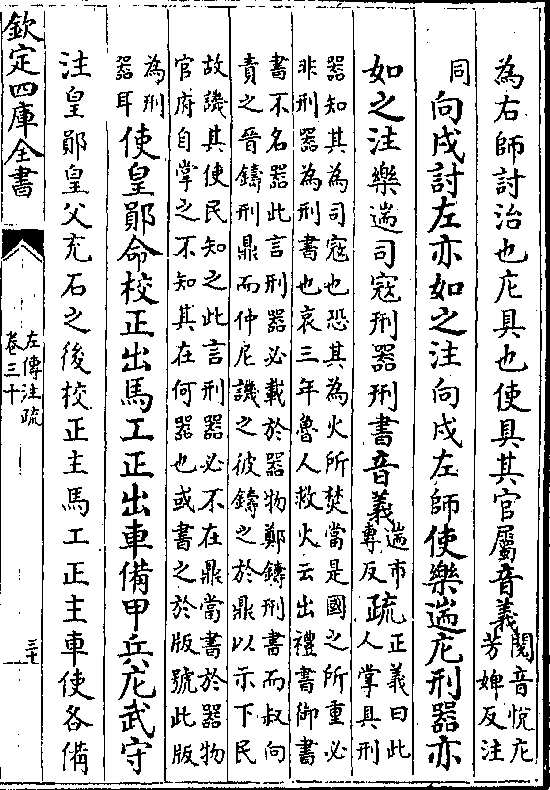 為右師討治也庀具也使具其官屬音義閱音悅庀
芳婢反注
同向戌討左亦如之注向戌左師使樂遄庀刑器亦
如之注樂遄司寇刑器刑書音義遄市
專反疏正義曰此
人掌具刑
器知其為司寇也恐其為火所焚當是國之所重必
非刑器為刑書也哀三年魯人救火云出禮書御書
書不名器此言刑器必載於器物鄭鑄刑書而叔向
責之晉鑄刑鼎而仲尼譏之彼鑄之於鼎以示下民
故譏其使民知之此言刑器必不在鼎當書於器物
官府自掌之不知其在何器也或書之於版號此版
為刑
器耳使皇鄖命校正出馬工正出車備甲兵庀武守
注皇鄖皇父充石之後校正主馬工正主車使各備
欽定四庫全書
左傳注疏
卷三十